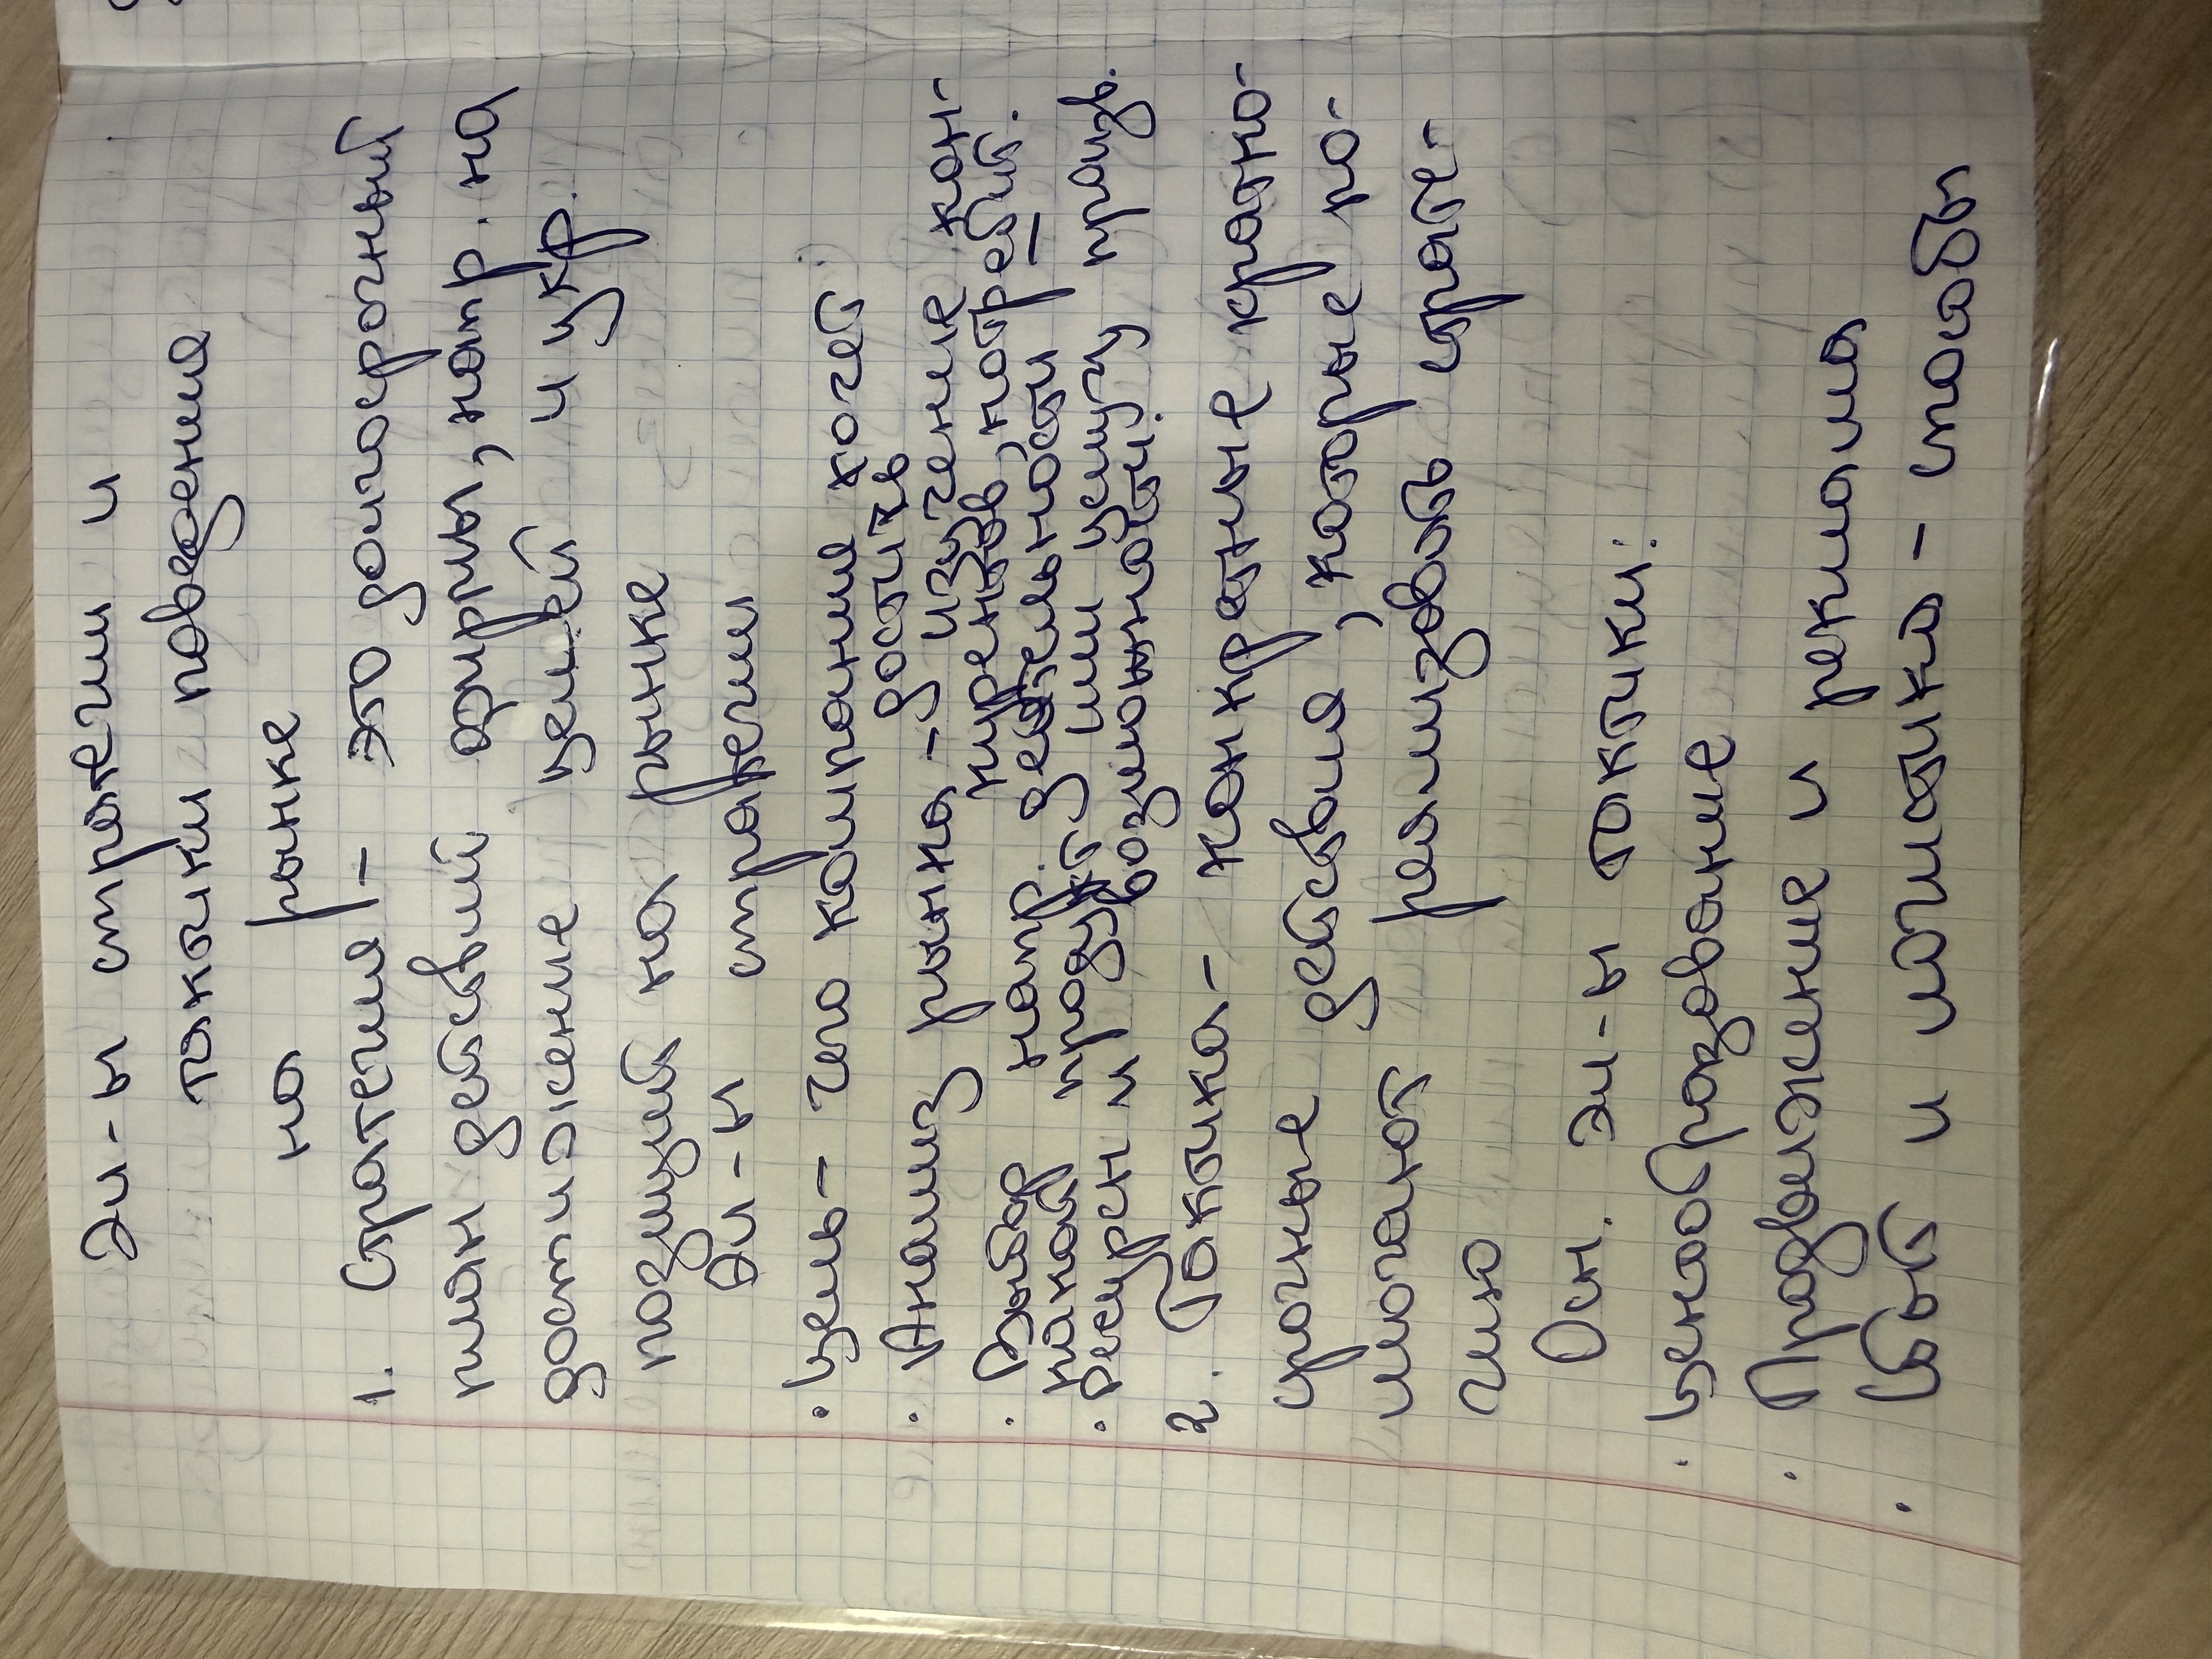 Эл-ы стратегии и
тактики поведения
на рынке
1. Стратегия - это долгосрочный
план действий фирмы, напр. на
достижение целей и укр.
позиций на рынке
Эл-ы стратегии
· Цель - чего компания хочет
достичь
· Анализ рынка - изучение кон-
курентов, потребит.
· Выбор напр. деятельности -
какой продукт или услугу произв.
· Ресурсы и возможности.
2. Тактика - конкретные кратко-
срочные действия, которые по-
могают реализовать страте-
гию
Осн. эл-ы тактики:
· Ценообразование
· Продвижение и реклама
· Сбыт и логистика -